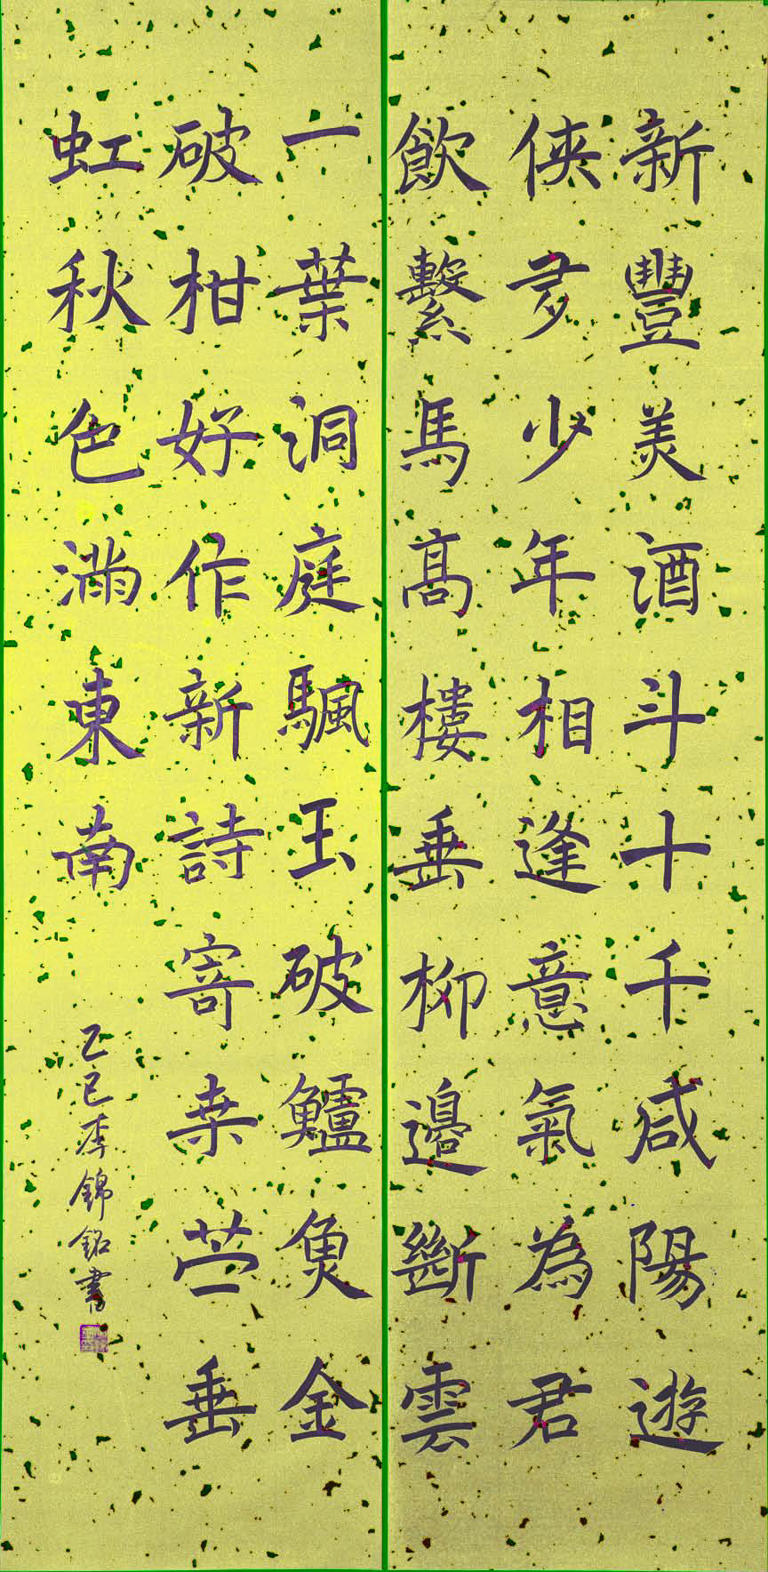 新豐美酒斗十千咸陽遊
俠多少年相逢意氣為君
飲繫馬髙樓垂柳邊斷雲
一葉洞庭颿玉破鱸魚金
破柑好作新詩寄桒苎垂
虹秋色滿東南
乙巳李錦銘書